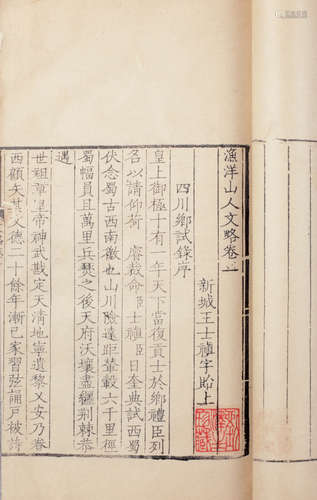 漁洋山人文略卷一
新城王士禛字貽上
四川鄉試錄序
皇上御極十有一年天下當復貢士於鄉禮臣列
名以請仰荷睿裁命臣士禛臣日奎典試西蜀
伏念蜀古西南徼也山川險遠距輦轂六千里徑
蜀幅員且萬里兵燹之後天府沃壤盡纏荊棘恭
遇
世祖章皇帝神武戡定天清地寧遺黎乂安乃眷
西顧矢其文德二十餘年漸已家習弦誦戶被詩